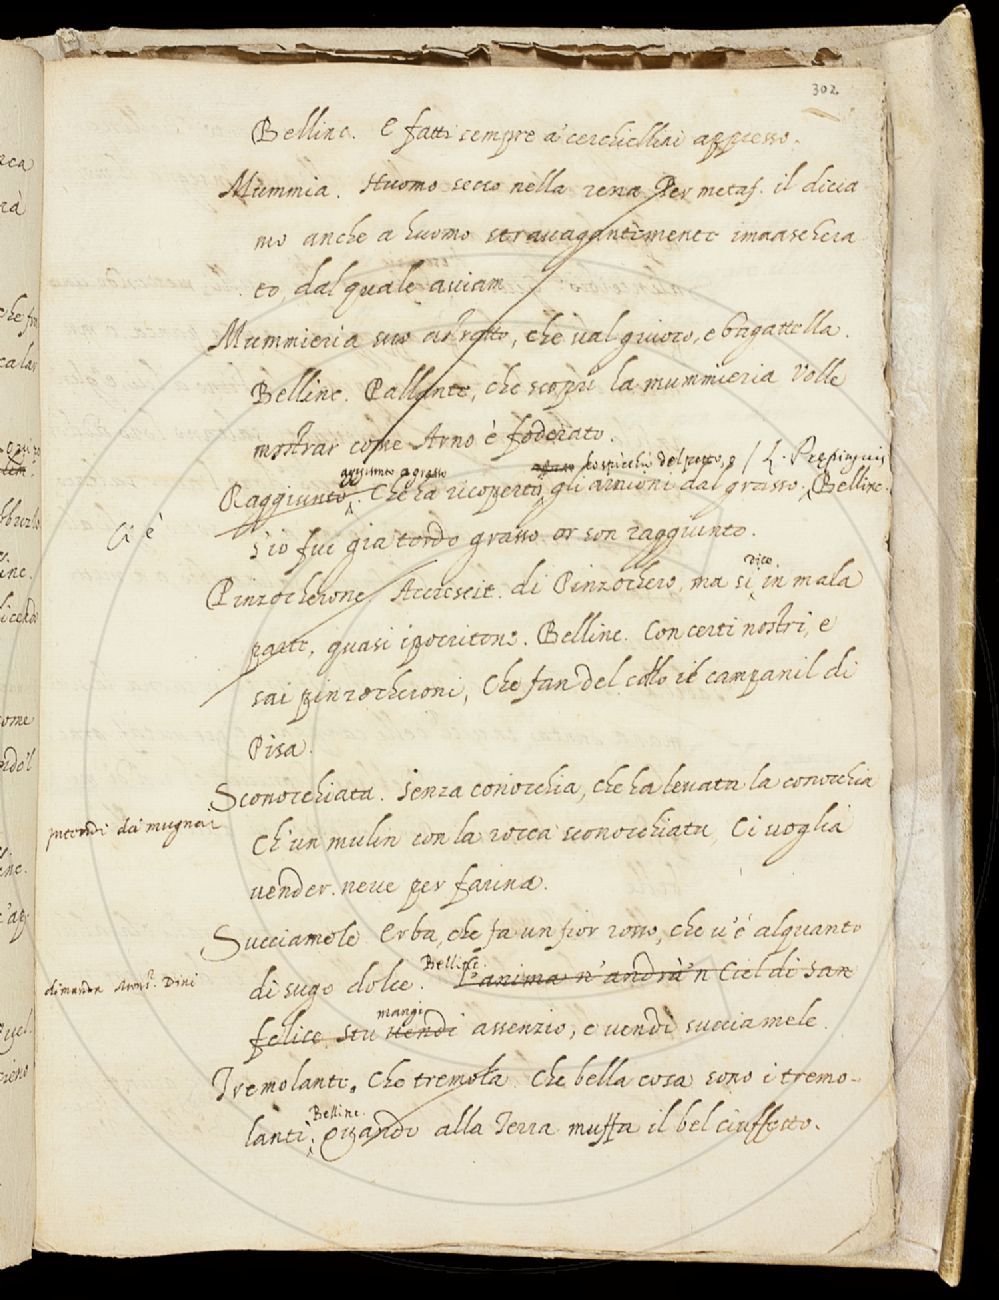 302.
Bellinc. e fatti sempre a' cerchiellini appresso.
Mummia. Huomo secco nella rena. Per metaf. il dicia
mo anche a huomo stravagantemente imaschera
to, dal quale aviam
Mummieria suo astratto, che val giuoco, e bagattella.
Bellinc. Pallante, che scoprì la mummieria Volle
mostrar come Arno è foderato.
aggiunto a grasso
Raggiunto. Che ha ricoperti gli arnioni dal grasso. Bellinc.
Ci è
S'io fui già tordo grasso or son raggiunto.
dico
Pinzocherone Accrescit. di Pinzochero, ma si in mala
parte, quasi ipocritone. Bellinc. Con certi nostri, e
sai pinzocheroni, Che fan del collo il campanil di
Pisa.
Sconocchiata. Senza conocchia, che ha levata la conocchia
dei mugnai
Ch'un mulin con la rocca sconocchiata, Ci voglia
vender neve per farina.
Succiamele Erba, che fa un fior rosso, che v'è alquanto
Bellinc.
di sugo dolce. L'anima n'andrà 'n Ciel di San
Dini
mangi
felice Stu vendi assenzio, e vendi succiamele.
Tremolante. Che tremola. Che bella cosa sono i tremo-
Bellinc.
lanti, Quando alla Terra muffa il bel ciuffetto.